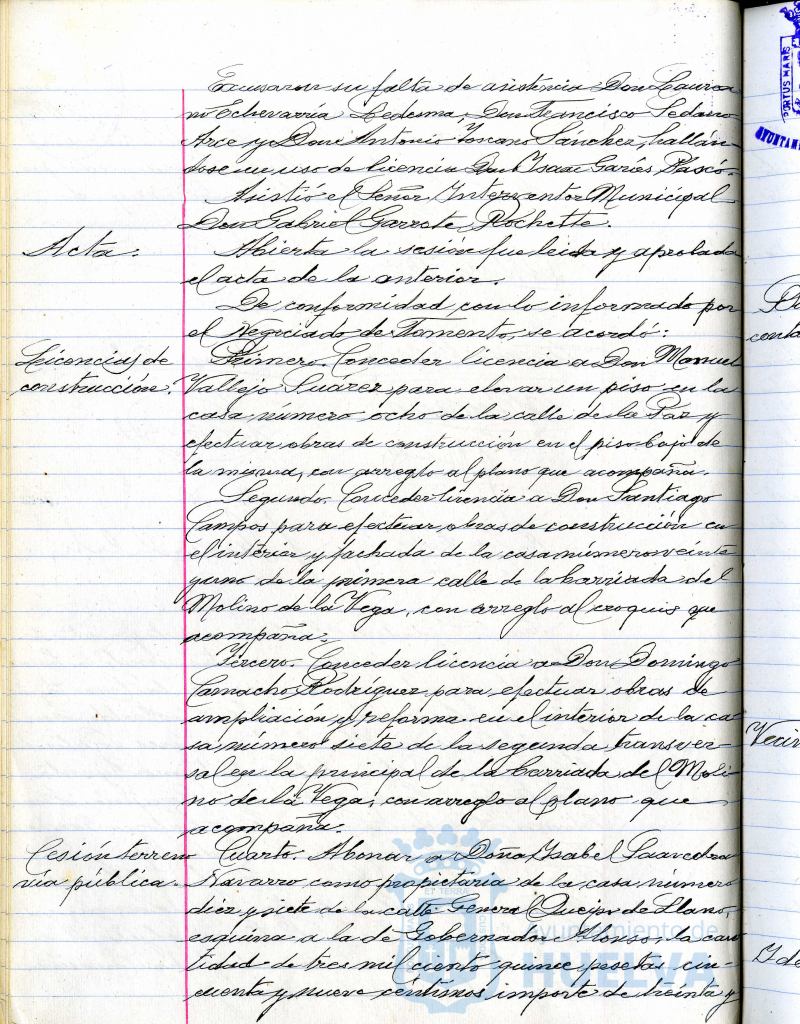 Excusaron su falta de asistencia Don Laurea
no Echevarría Ledesma, Don Francisco Sedano
Arce y Don Antonio Toscano Sánchez, hallán-
dose en uso de licencia Don Isaac Garós Pascó.
Asistió el Señor Interventor Municipal
Don Gabriel Garrote Rochette.
Acta.
Abierta la sesión fue leida y aprobada
el acta de la anterior.
De conformidad con lo informado por
el Negociado de Fomento, se acordó:
Licencias de
construcción.
Primero. Conceder licencia a Don Manuel
Vallejo Suárez para elevar un piso en la
casa número ocho de la calle de la Paz y
efectuar obras de construcción en el piso bajo de
la misma, con arreglo al plano que acompaña.
Segundo. Conceder licencia a Don Santiago
Campos para efectuar obras de construcción en
el interior y fachada de la casa número veinte
y uno de la primera calle de la barriada del
Molino de la Vega, con arreglo al croquis que
acompaña.
Tercero. Conceder licencia a Don Domingo
Camacho Rodríguez para efectuar obras de
ampliación y reforma en el interior de la ca
sa número siete de la segunda transver-
sal en la principal de la barriada del Moli-
no de la Vega, con arreglo al plano que
acompaña.
Cesión terreno
vía pública.
Cuarto. Abonar a Doña Isabel Saavedra
Navarro como propietaria de la casa número
diez y siete de la calle General Queipo de Llano,
esquina a la de Gobernador Alonso, la can
tidad de tres mil ciento quince pesetas cin-
cuenta y nueve céntimos importe de treinta y
Ayuntamiento de
HUELVA
PORTUS MARIS